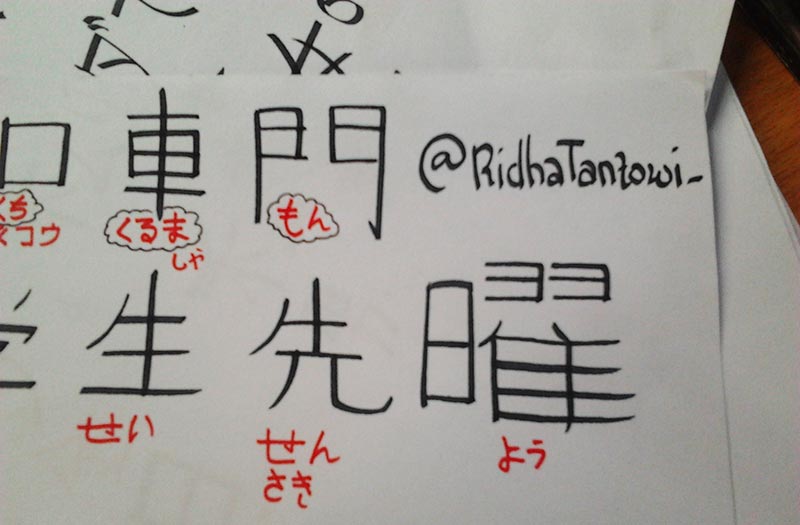 口 車 門 @RidhaTantowi_
くち くるま もん
コウ しゃ
生 先 曜
せい せん よう
さき